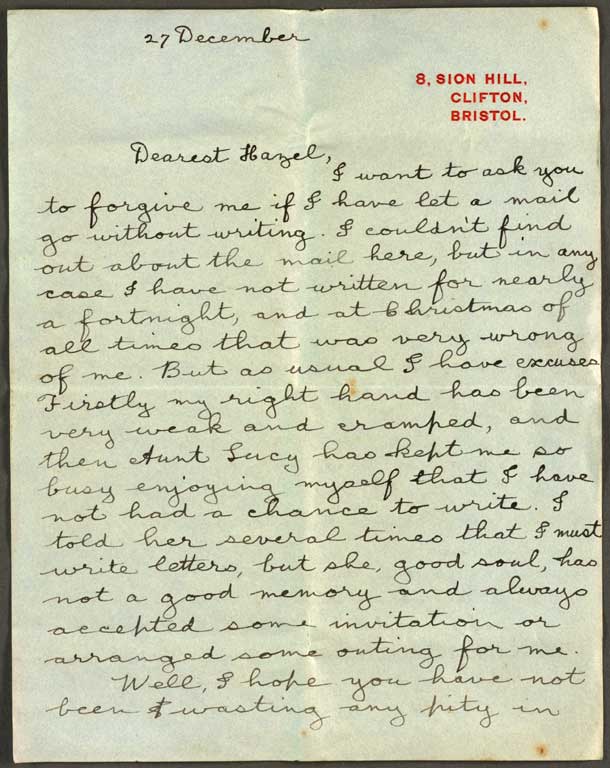 27 December
8, SION HILL,
CLIFTON,
BRISTOL.
Dearest Hazel,
I want to ask you
to forgive me if I have let a mail
go without writing. I couldn't find
out about the mail here, but in any
case I have not written for nearly
a fortnight, and at Christmas of
all times that was very wrong
of me. But as usual I have excuses
Firstly my right hand has been
very weak and cramped, and
then Aunt Lucy has kept me so
busy enjoying myself that I have
not had a chance to write. I
told her several times that I must
write letters, but she, good soul, has
not a good memory and always
accepted some invitation or
arranged some outing for me.
Well, I hope you have not
been wasting any pity in